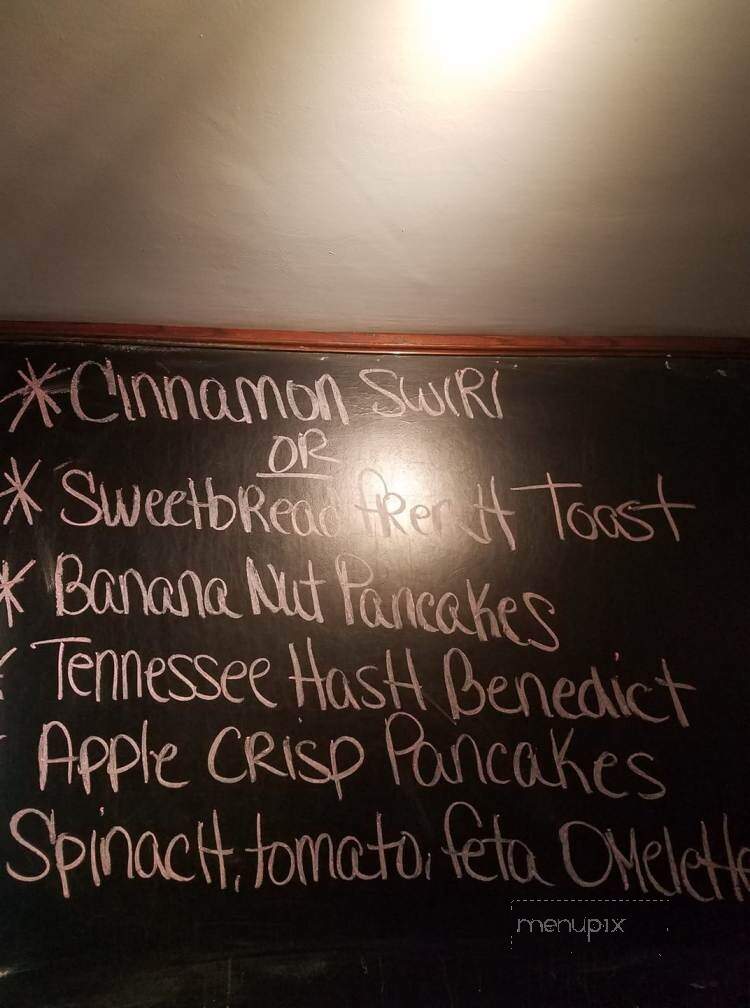 * Cinnamon Swirl
OR
* Sweetbread French Toast
* Banana Nut Pancakes
Tennessee Hash Benedict
Apple Crisp Pancakes
Spinach, tomato, feta Omelette
menupix